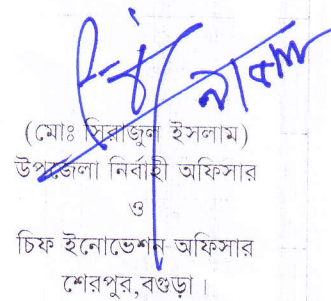 (মোঃ সিরাজুল ইসলাম)
উপজেলা নির্বাহী অফিসার
ও
চিফ ইনোভেশন অফিসার
শেরপুর,বগুড়া।